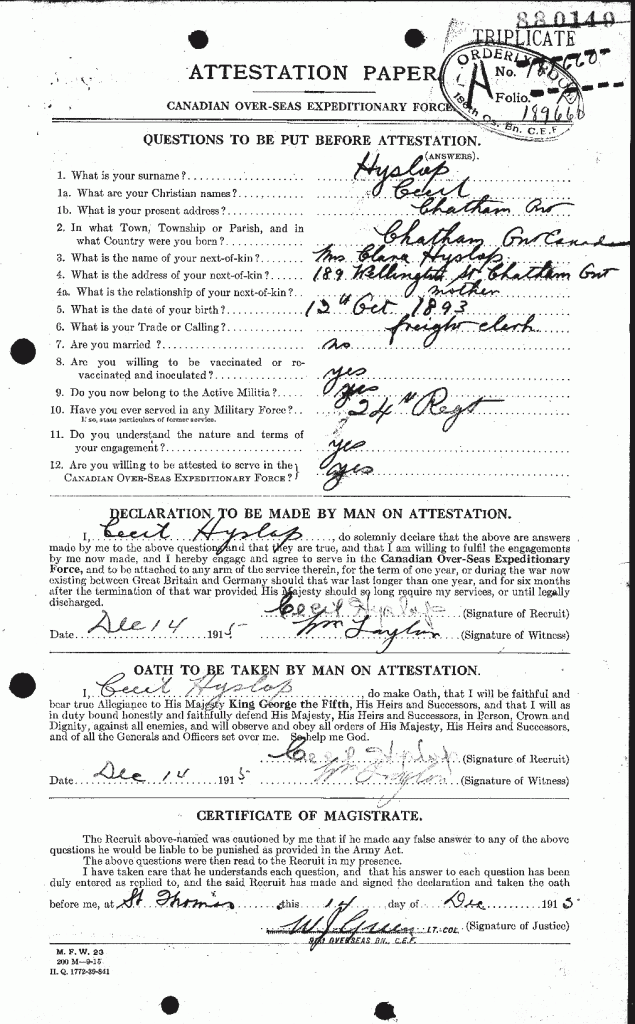 880149
TRIPLICATE
ORDERLY ROOM
A No.
Folio.
189660
186th Os. Bn. C.E.F.
ATTESTATION PAPER.
CANADIAN OVER-SEAS EXPEDITIONARY FORCE.
QUESTIONS TO BE PUT BEFORE ATTESTATION.
(ANSWERS).
1. What is your surname? Hyslop
1a. What are your Christian names? Cecil
1b. What is your present address? Chatham Ont
2. In what Town, Township or Parish, and in
what Country were you born? Chatham Ont Canada
3. What is the name of your next-of-kin? Mrs Clara Hyslop
4. What is the address of your next-of-kin? 189 Wellington St Chatham Ont
4a. What is the relationship of your next-of-kin? mother
5. What is the date of your birth? 12th Oct 1893
6. What is your Trade or Calling? freight clerk
7. Are you married? no
8. Are you willing to be vaccinated or re-
vaccinated and inoculated? yes
9. Do you now belong to the Active Militia? yes
10. Have you ever served in any Military Force? 24th Regt
If so, state particulars of former service.
11. Do you understand the nature and terms of
your engagement? yes
12. Are you willing to be attested to serve in the
CANADIAN OVER-SEAS EXPEDITIONARY FORCE? yes
DECLARATION TO BE MADE BY MAN ON ATTESTATION.
I, Cecil Hyslop, do solemnly declare that the above are answers
made by me to the above questions and that they are true, and that I am willing to fulfil the engagements
by me now made, and I hereby engage and agree to serve in the Canadian Over-Seas Expeditionary
Force, and to be attached to any arm of the service therein, for the term of one year, or during the war now
existing between Great Britain and Germany should that war last longer than one year, and for six months
after the termination of that war provided His Majesty should so long require my services, or until legally
discharged.
Cecil Hyslop (Signature of Recruit)
Date Dec 14 1915 Wm Taylor (Signature of Witness)
OATH TO BE TAKEN BY MAN ON ATTESTATION.
I, Cecil Hyslop, do make Oath, that I will be faithful and
bear true Allegiance to His Majesty King George the Fifth, His Heirs and Successors, and that I will as
in duty bound honestly and faithfully defend His Majesty, His Heirs and Successors, in Person, Crown and
Dignity, against all enemies, and will observe and obey all orders of His Majesty, His Heirs and Successors,
and of all the Generals and Officers set over me. So help me God.
Cecil Hyslop (Signature of Recruit)
Date Dec 14 1915 Wm Taylor (Signature of Witness)
CERTIFICATE OF MAGISTRATE.
The Recruit above-named was cautioned by me that if he made any false answer to any of the above
questions he would be liable to be punished as provided in the Army Act.
The above questions were then read to the Recruit in my presence.
I have taken care that he understands each question, and that his answer to each question has been
duly entered as replied to, and the said Recruit has made and signed the declaration and taken the oath
before me, at St Thomas this 14 day of Dec 1915
LT. COL. (Signature of Justice)
OVERSEAS BN., C.E.F.
M. F. W. 23
200 M—9-15
H. Q. 1772-39-841